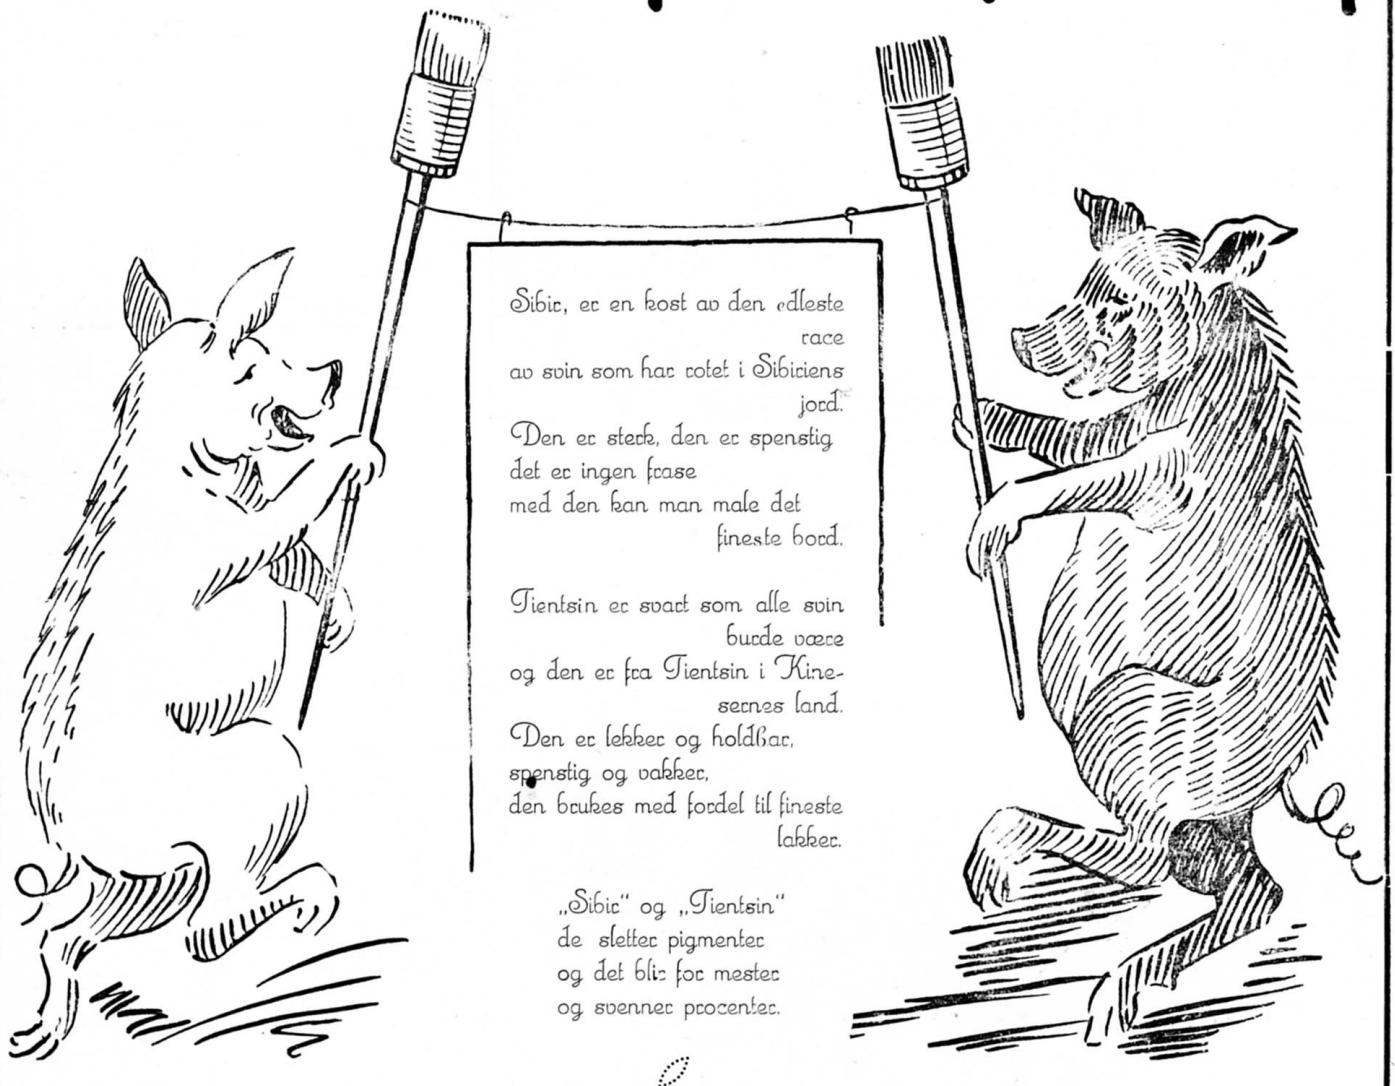 Sibir, er en kost av den edleste
race
av svin som har rotet i Sibiriens
jord.
Den er sterk, den er spenstig
det er ingen frase
med den kan man male det
fineste bord.
Tientsin er svart som alle svin
burde være
og den er fra Tientsin i Kine-
sernes land.
Den er lekker og holdbar,
spenstig og vakker,
den brukes med fordel til fineste
lakker.
„Sibir" og „Tientsin"
de sletter pigmenter
og det blir for mester
og svenner procenter.